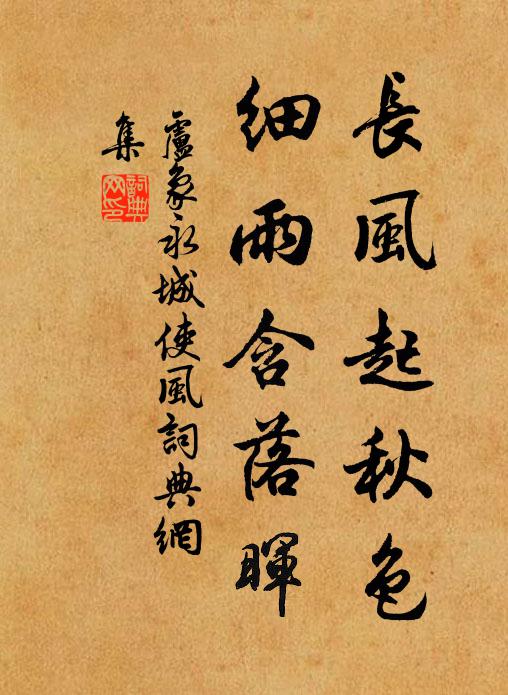 長風起秋色
細雨含落暉
盧象永城使風詞典網
集
詞典
网印